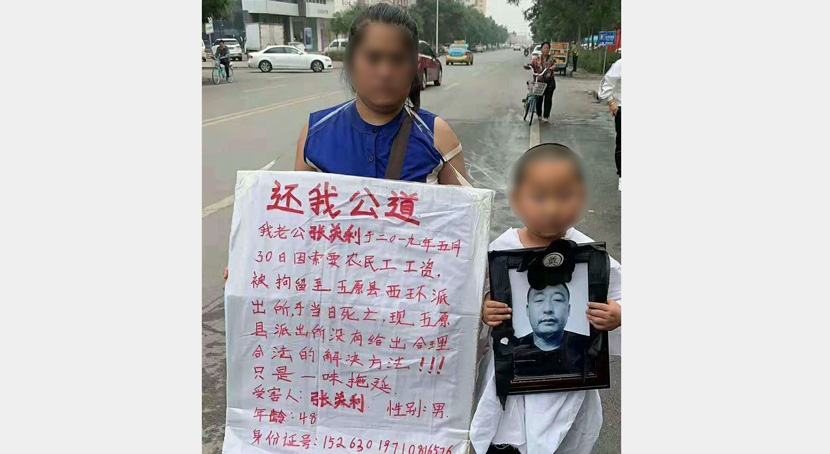 还我公道
我老公张美利于二〇一九年五月
30日因索要农民工工资,
被拘留至五原县西环派
出所,于当日死亡,现五原
县派出所没有给出合理
合法的解决方法!!!
只是一味拖延.
受害人:张美利 性别:男.
年龄:48
身份证号: